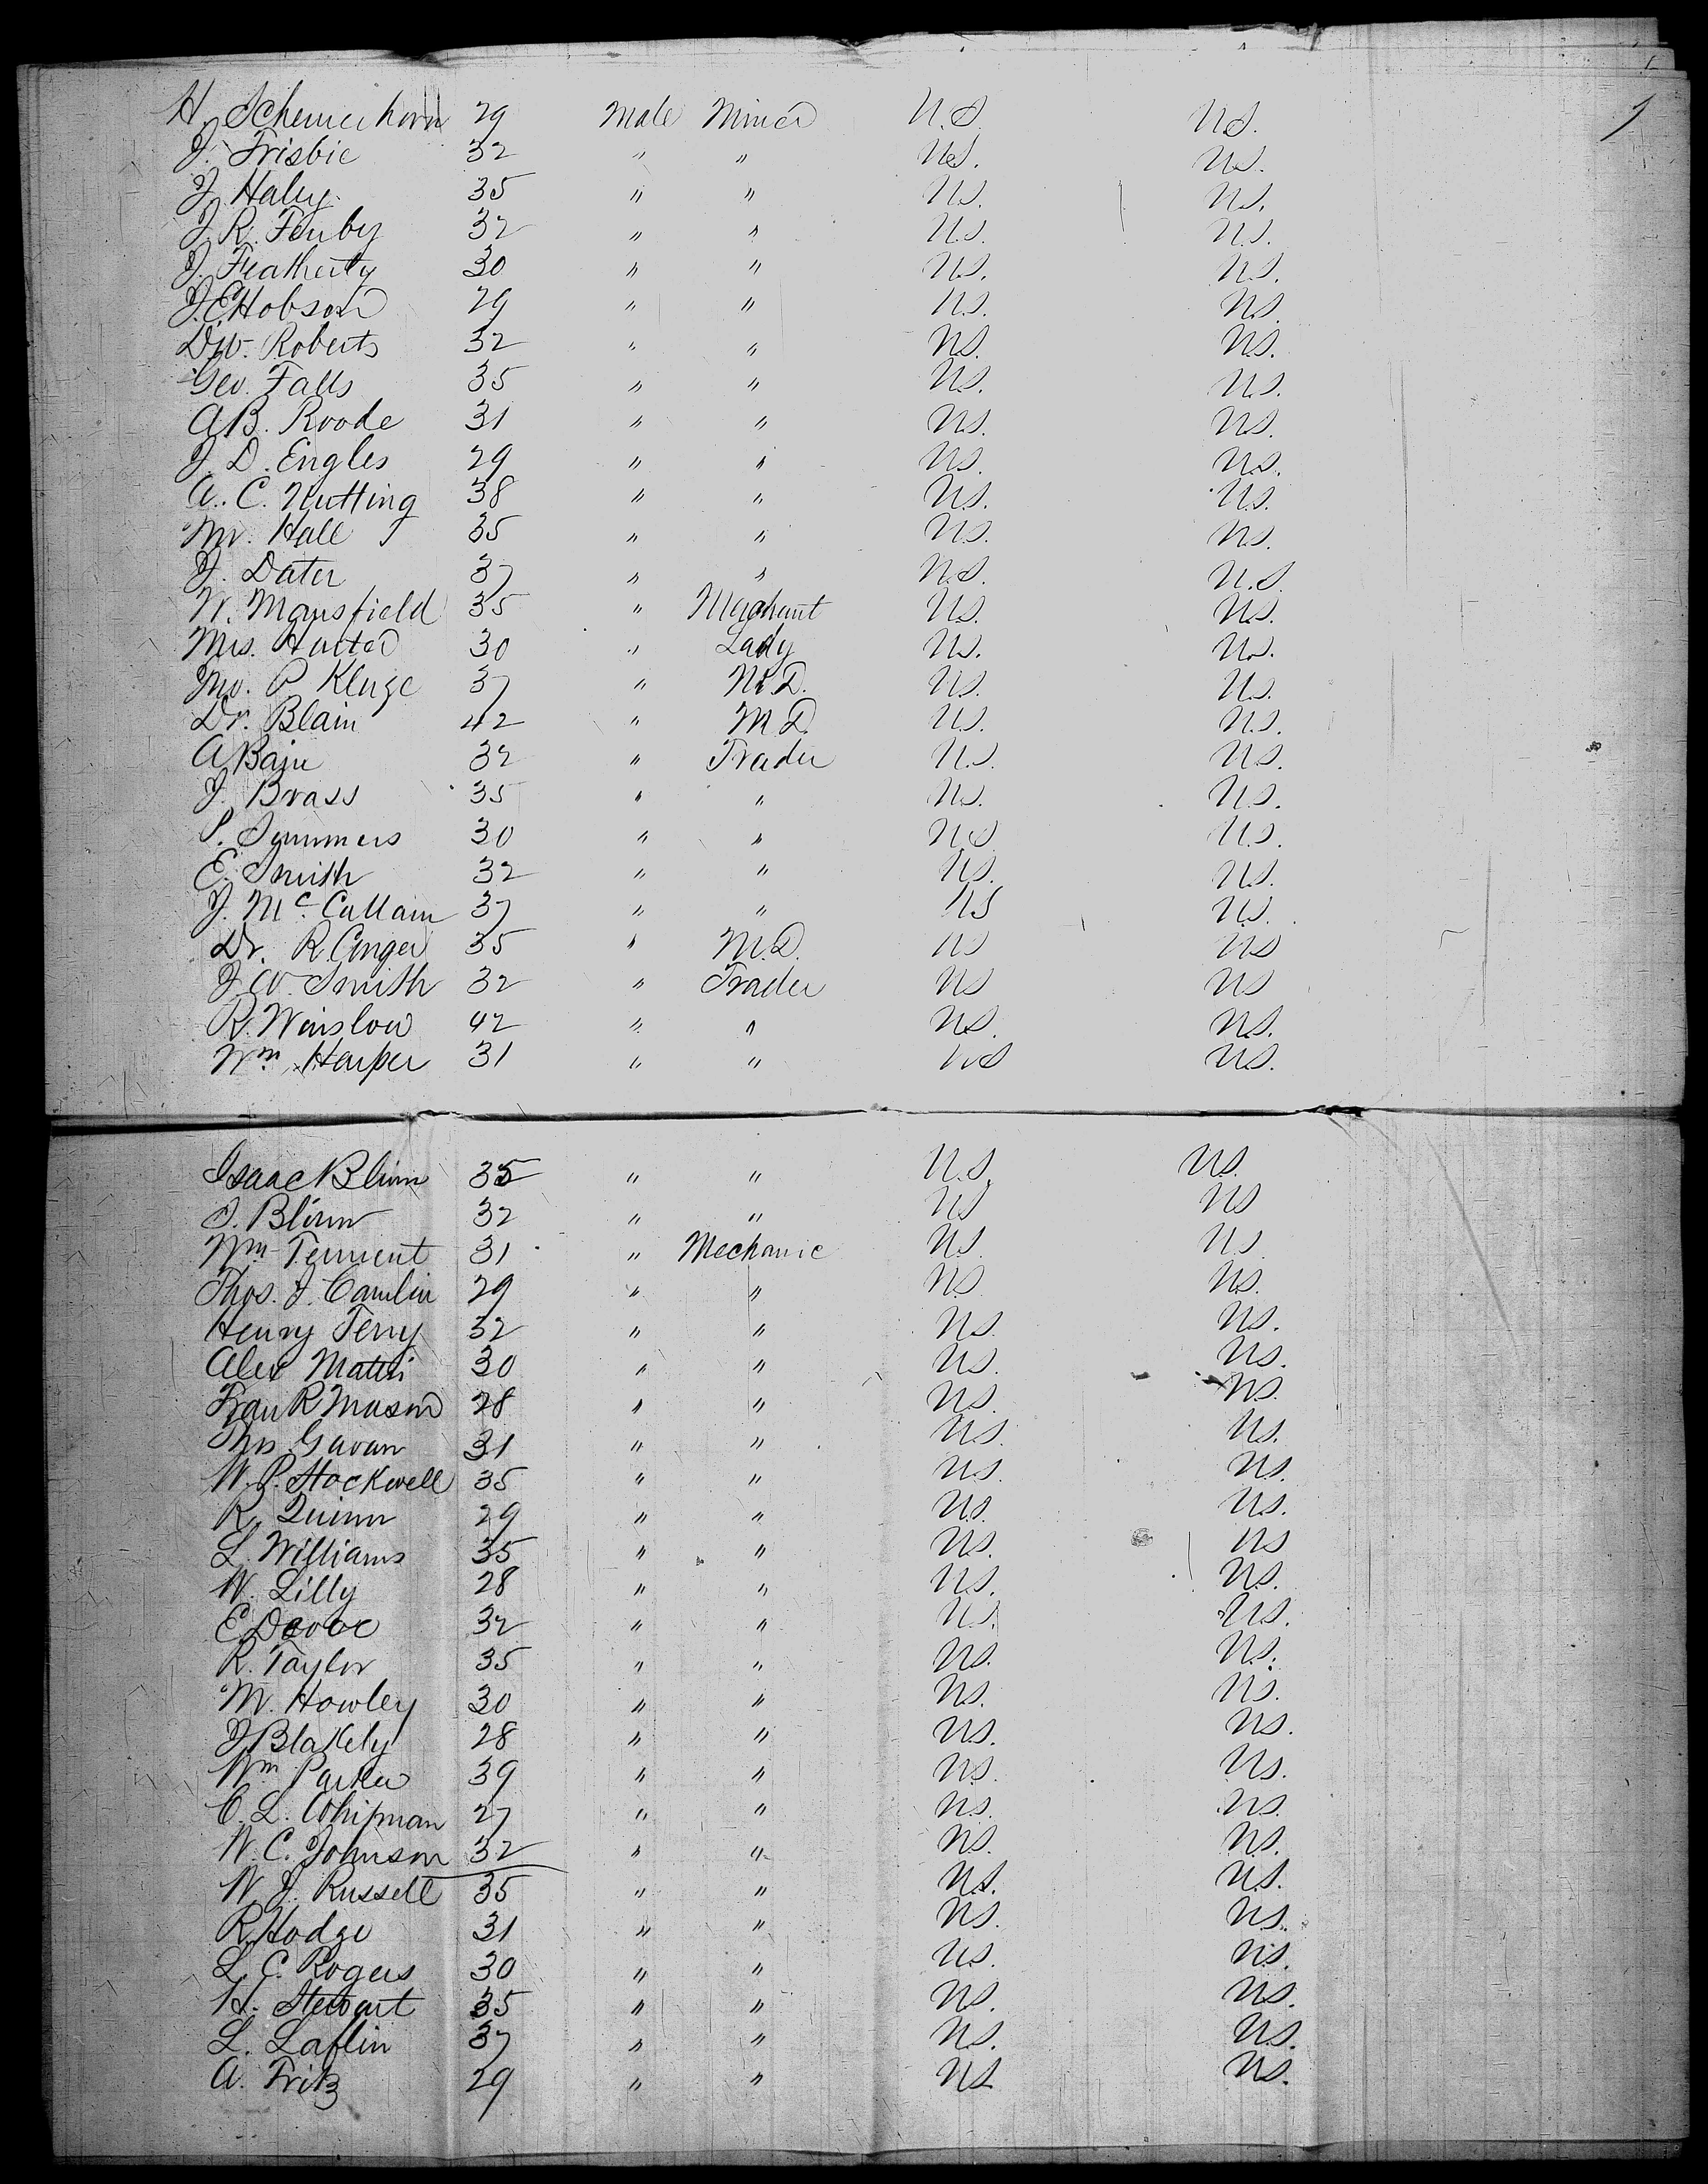 H. Schemerhorn 29 Male Miner U.S. U.S.
J. Frisbie 32 " " U.S. U.S.
J. Haley. 35 " " U.S. U.S.
J. R. Fenby 32 " " U.S. U.S.
J. Featherty 30 " " U.S. U.S.
J. E Hobson 29 " " U.S. U.S.
D.W. Roberts 32 " " U.S. U.S.
Geo. Falls 35 " " U.S. U.S.
A B. Roode 31 " " U.S. U.S.
J. D. Engles 29 " " U.S. U.S.
A. C. Nutting 38 " " U.S. U.S.
Mr. Hall 35 " " U.S. U.S.
J. Dater 37 " " U.S. U.S.
W. Mansfield 35 " Merchant U.S. U.S.
Mrs. 30 " Lady U.S. U.S.
Jno. P Kluge 37 " M.D. U.S. U.S.
Dr. Blain 42 " M.D. U.S. U.S.
A 32 " Trader U.S. U.S.
J. Brass 35 " " U.S. U.S.
P. Summers 30 " " U.S. U.S.
E. Smith 32 " " U.S. U.S.
J. Mc. Callam 37 " " U.S U.S.
Dr. R. Conger 35 " M.D. U S U.S
J W. Smith 32 " Trader U S U S
R. Winslow 42 " " U.S. U.S.
Wm. Harper 31 " " U S U.S.
Isaac Blum 35 " " U.S. U.S.
I. Blum 32 " " U S U S
Wm Tennent 31 " Mechanic U.S. U.S
Thos. J. Camlin 29 " " U.S. U.S.
Henry Terry 32 " " U.S. U.S.
Alex 30 " " U.S. U.S.
Frau R Mason 28 " " U.S. U.S.
Thos Gavan 31 " " U.S. U.S.
W. P. Stockwell 35 " " U.S. U.S.
R. Quinn 29 " " U.S. U.S.
L. Williams 35 " " U.S. U S
W. Lilly 28 " " U.S. U.S.
E. Devoe 32 " " U.S. U.S.
R. Taylor 35 " " U.S. U.S.
M. Howley 30 " " U.S. U.S.
J Blakely 28 " " U.S. U.S.
Wm Parker 39 " " U.S. U.S.
C. L. Whipman 27 " " U.S. U.S.
W. C. Johnson 32 " " U.S. U.S.
W J. Russell 35 " " U.S. U.S.
R. Hodge 31 " " U.S. U.S.
L. C. Rogers 30 " " U.S. U.S.
H. Stewart 35 " " U.S. U.S.
L. Laflin 37 " " U.S. U.S.
A. Fritz 29 " " U S U.S.